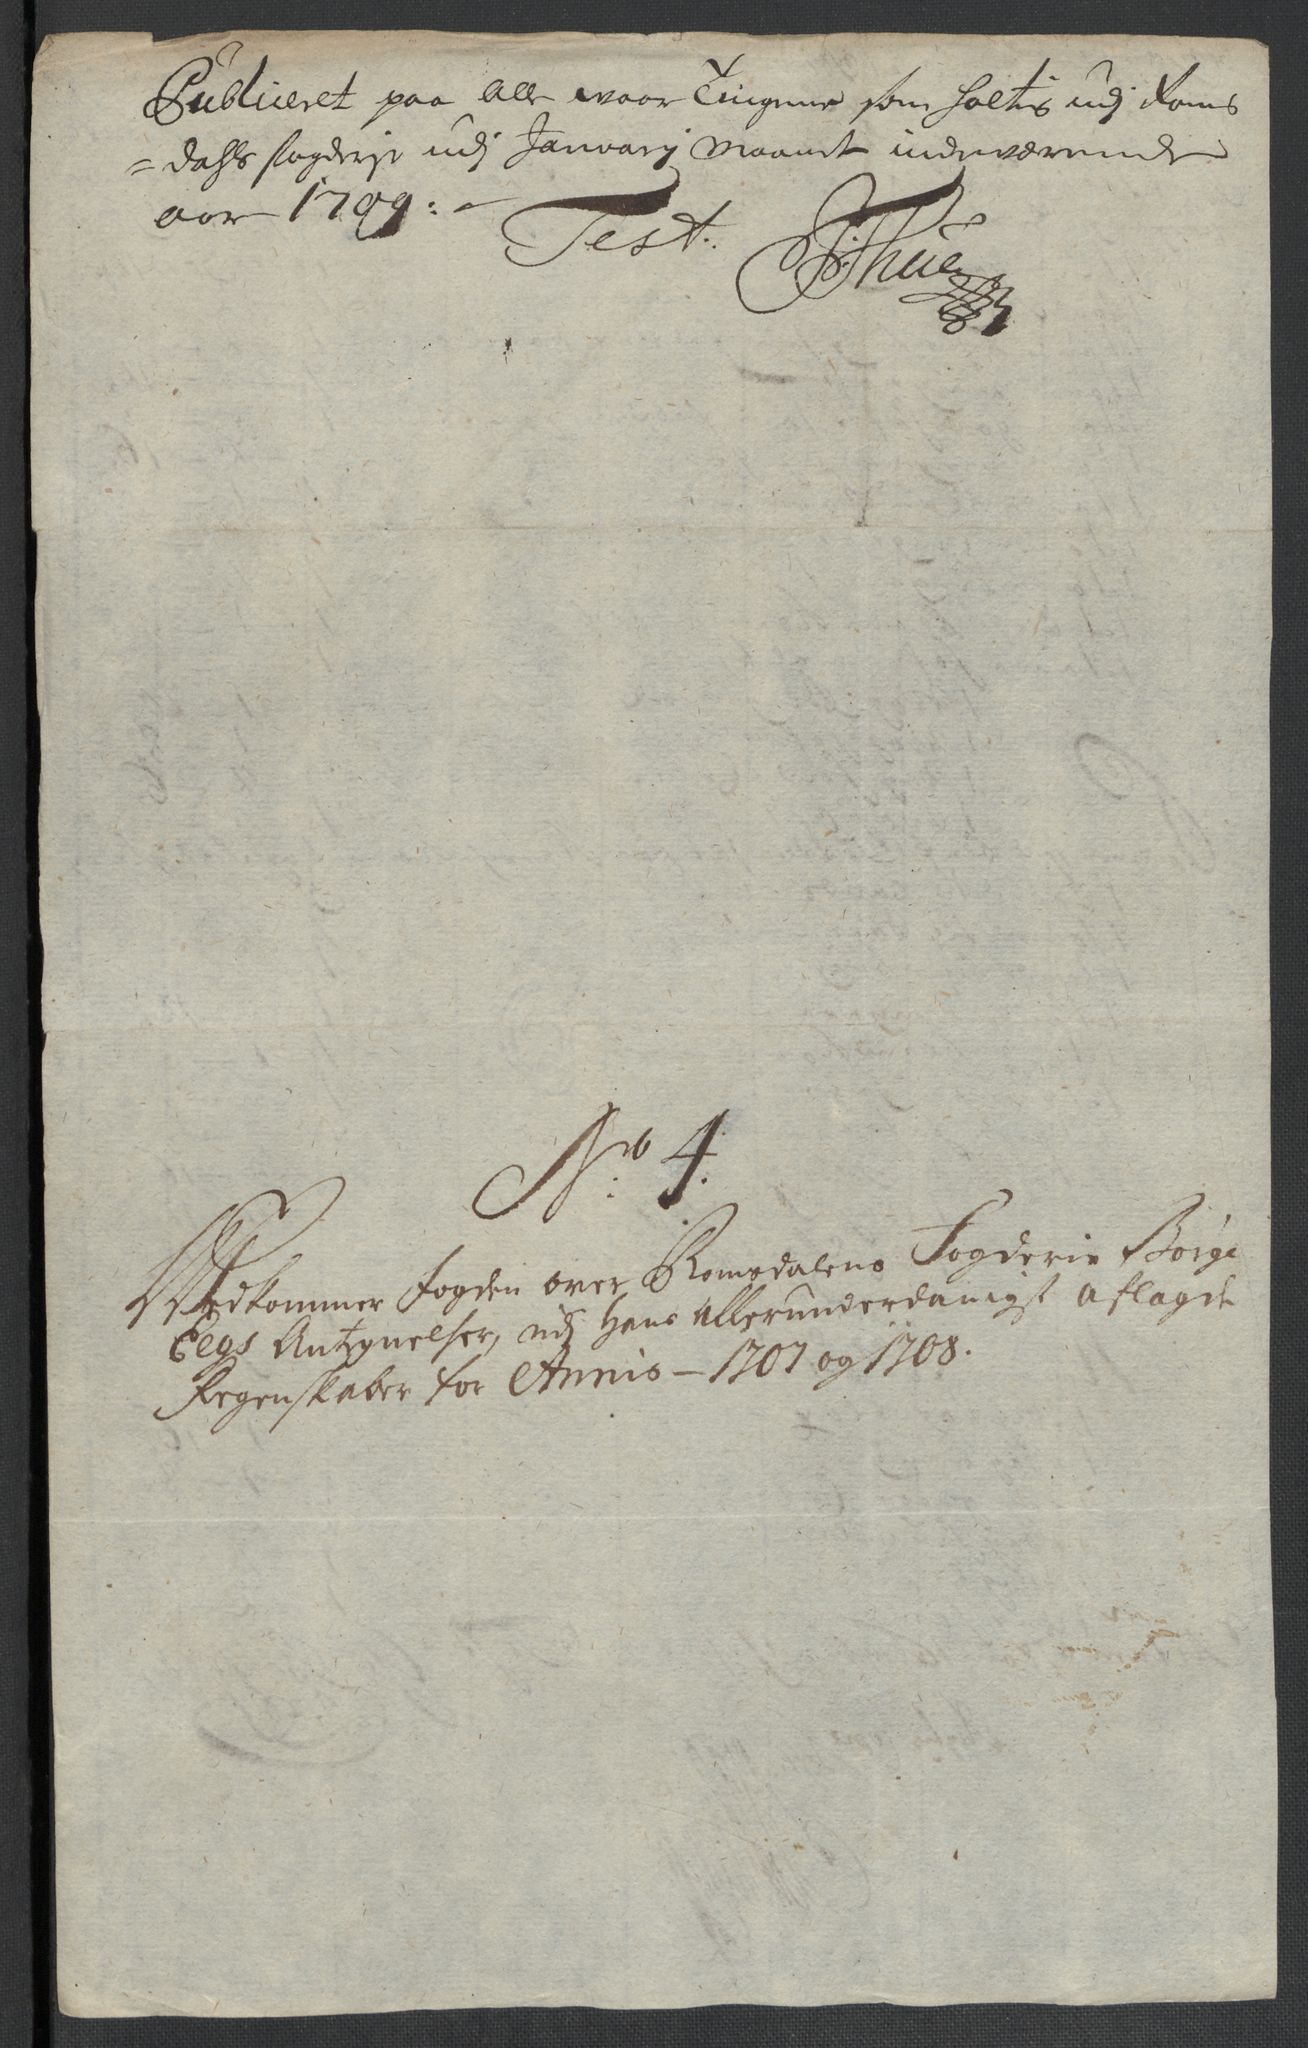 Publiceret paa alle waar Tingene som holtes udj Roms
=dahls fogderje udj Januarij Maanet indeværende
aar 1709:
Test. Thue
No: 4.
Wedkommer fogden over Romsdalens Fogderie Børge
Eegs Antegnelser, udj hans allerunderdanigst aflagde
Regenskaber for Annis - 1707 og 1708.